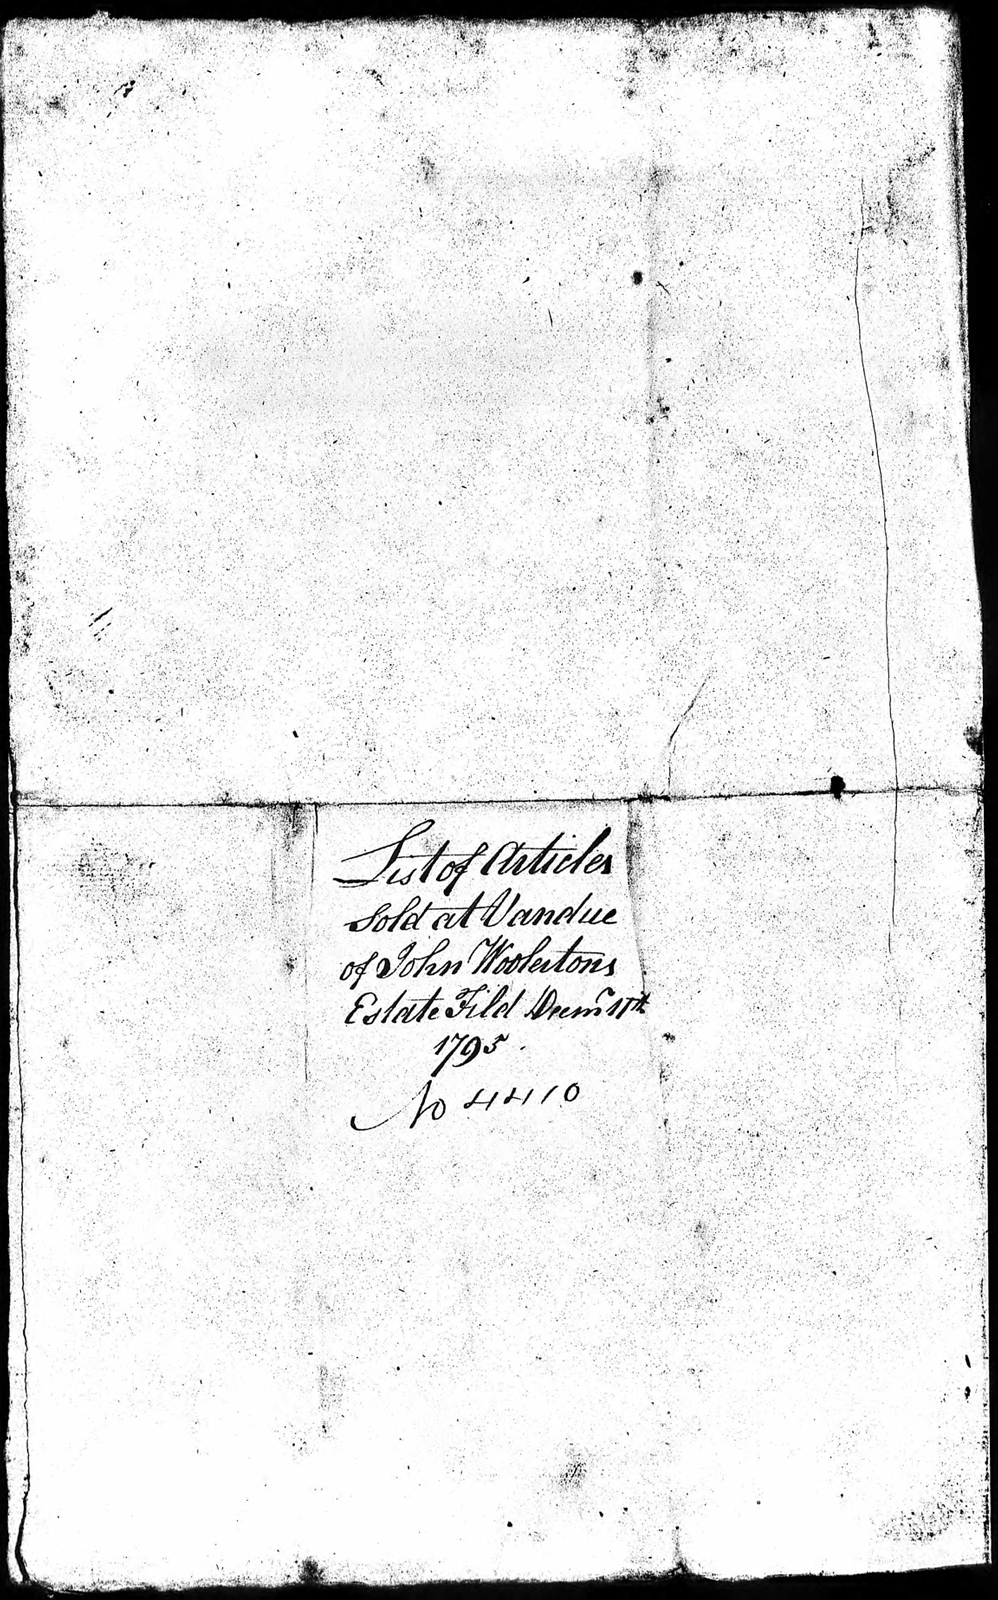 List of Articles
Sold at Vandue
of John Woolertons
Estate Fild Decmr 11th
1795
No 4410